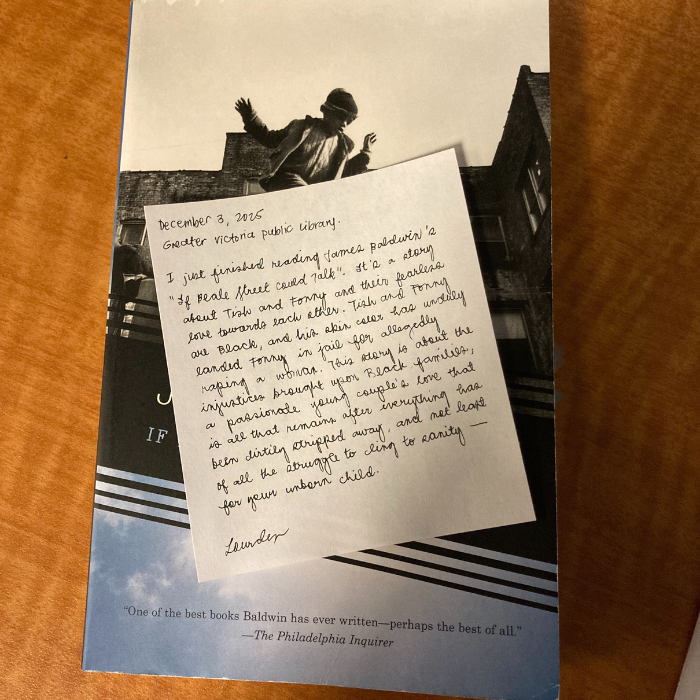 December 3, 2025
Greater Victoria Public Library.
I just finished reading James Baldwin's
"If Beale Street Could Talk". It's a story
about Tish and Fonny and their fearless
love towards each other. Tish and Fonny
are Black, and his skin color has unduly
landed Fonny in jail for allegedly
raping a woman. This story is about the
injustices brought upon Black families,
a passionate young couple's love that
is all that remains after everything has
been dirtily stripped away, and not least
of all the struggle to cling to sanity —
for your unborn child.
Lourdes
J
IF
"One of the best books Baldwin has ever written—perhaps the best of all."
—The Philadelphia Inquirer